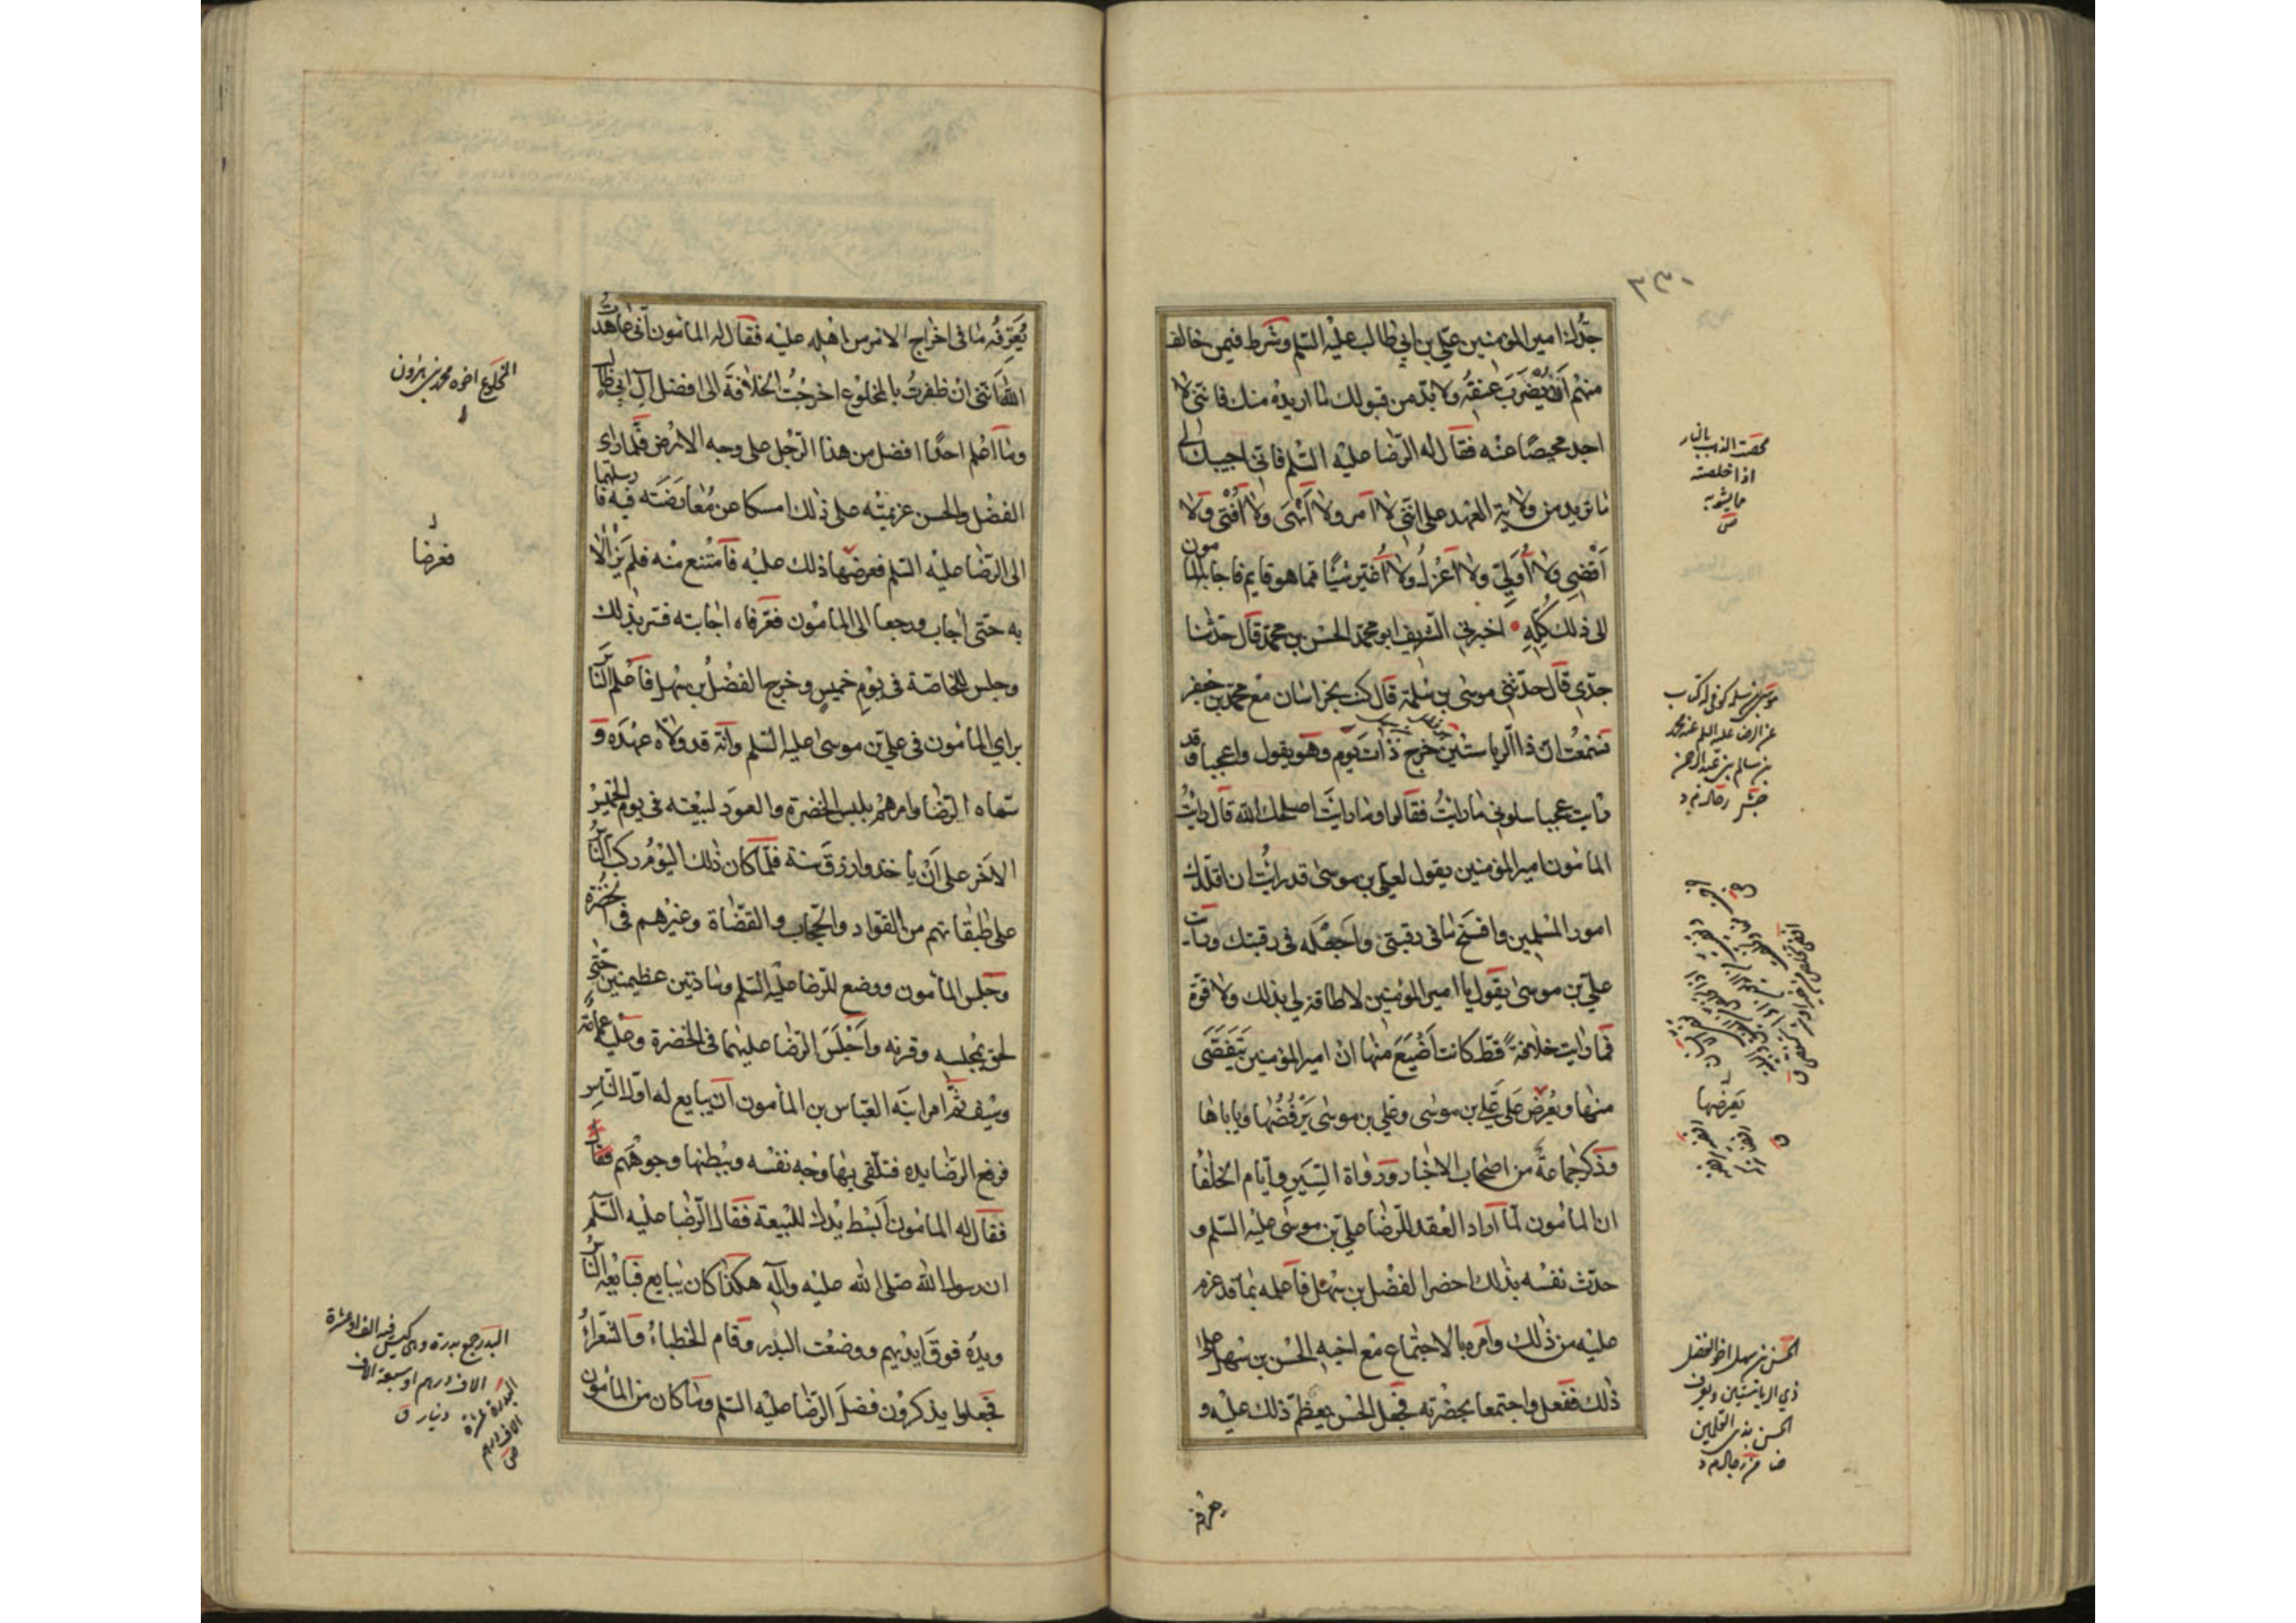 ٢٣٠
جدك امير المؤمنين علي بن ابي طالب عليه السلم وشرط فيمن خالف
منهم ان يضرب عنقه ولا بد من قبولك لما اريده منك فانني لا
اجد محيصا عنه فقال له الرضا عليه السلم فاني اجيبك الى
ما تريد من ولاية العهد على انني لا آمر ولا انهى ولا افتي ولا
اقضي ولا اولي ولا اعزل ولا اغير شيئا مما هو قايم فاجابه المامون
الى ذلك كله اخبرني الشريف ابو محمد الحسن بن محمد قال حدثنا
جدي قال حدثني موسى بن سلمة قال كنت بخراسان مع محمد بن جعفر
فسمعت ان ذا الرياستين خرج ذات يوم وهو يقول واعجبا وقد
رايت عجبا سلوني ما رايت فقالوا وما رايت اصلحك الله قال رايت
المامون امير المؤمنين يقول لعلي بن موسى قد رايت ان اقلدك
امور المسلمين وافسخ ما في رقبتي واجعله في رقبتك ورايت
علي بن موسى يقول يا امير المؤمنين لا طاقة لي بذلك ولا قوة
فما رايت خلافة قط كانت اضيع منها ان امير المؤمنين يتفصى
منها ويعرض على علي بن موسى وعلي بن موسى يرفضها وياباها
وذكر جماعة من اصحاب الاخبار ورواة السير وايام الخلفا
ان المامون لما اراد العقد للرضا علي بن موسى عليه السلم و
حدث نفسه بذلك احضر الفضل بن سهل فاعلمه بما قد عزم
عليه من ذلك وامره بالاجتماع مع اخيه الحسن بن سهل على
ذلك ففعل واجتمعا بحضرته فجعل الحسن يعظم ذلك عليه و
يعرفه
محصت الذهب بالنار
اذا خلصته
مما يشوبه
ص
يعرضها
الحسن بن سهل اخو الفضل
ذي الرياستين ويعرف
الحسن بذي القلمين
يعرفه ما في اخراج الامر من اهله عليه فقال له المامون اني عاهدت
الله انني ان ظفرت بالمخلوع اخرجت الخلافة الى افضل آل ابي طالب
وما اعلم احدا افضل من هذا الرجل على وجه الارض فلما راى
الفضل والحسن عزيمته على ذلك امسكا عن معارضته فيه فارسلهما
الى الرضا عليه السلم فعرضها ذلك عليه فامتنع منه فلم يزالا
به حتى اجاب ورجعا الى المامون فعرفاه اجابته فسر بذلك
وجلس للخاصة في يوم خميس وخرج الفضل بن سهل فاعلم الناس
براي المامون في علي بن موسى عليه السلم وانه قد ولاه عهده و
سماه الرضا وامرهم بلبس الخضرة والعود لبيعته في يوم الخميس
الاخر على ان ياخذوا رزق سنة فلما كان ذلك اليوم ركب الناس
على طبقاتهم من القواد والحجاب والقضاة وغيرهم في الخضرة
وجلس المامون ووضع للرضا عليه السلم وسادتين عظيمتين حتى
لحق بمجلسه وفرشه واجلس الرضا عليهما في الخضرة وعليه عمامة
وسيف ثم امر ابنه العباس بن المامون ان يبايع له اول الناس
فرفع الرضا يده فتلقى بها وجه نفسه وببطنها وجوههم فقال
فقال له المامون ابسط يدك للبيعة فقال الرضا عليه السلم
ان رسول الله صلى الله عليه وآله هكذا كان يبايع فبايعه الناس
ويده فوق ايديهم ووضعت البدر وقام الخطباء والشعراء
فجعلوا يذكرون فضل الرضا عليه السلم وما كان من المامون
المخلوع اخوه محمد بن هرون
فعرضا
البدر جمع بدرة وهي كيس فيه الف او عشرة
الاف درهم او سبعة الاف
دينار ق
البدرة عشرة
الاف درهم
ص